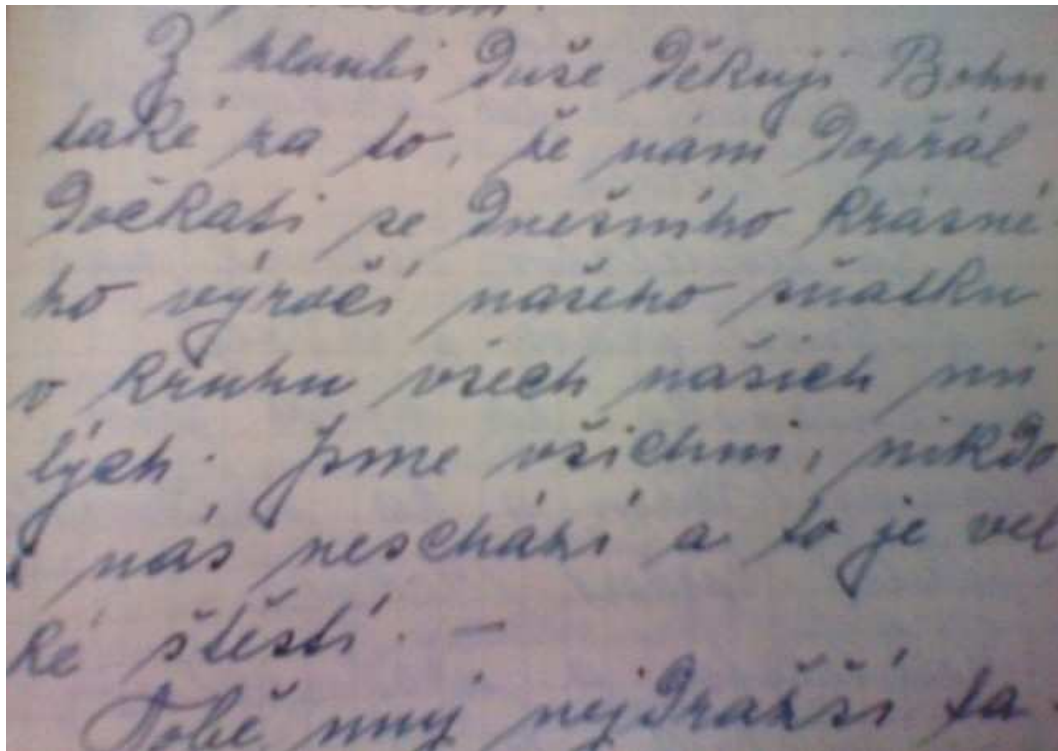 Z hloubi duše děkuji Bohu
také za to, že nám dopřál
dočkati se dnešního krásné
ho výročí našeho sňatku
v kruhu všech našich mi
lých. Jsme všichni, nikdo
z nás neschází a to je vel
ké štěstí. —
Tobě můj nejdražší ta-